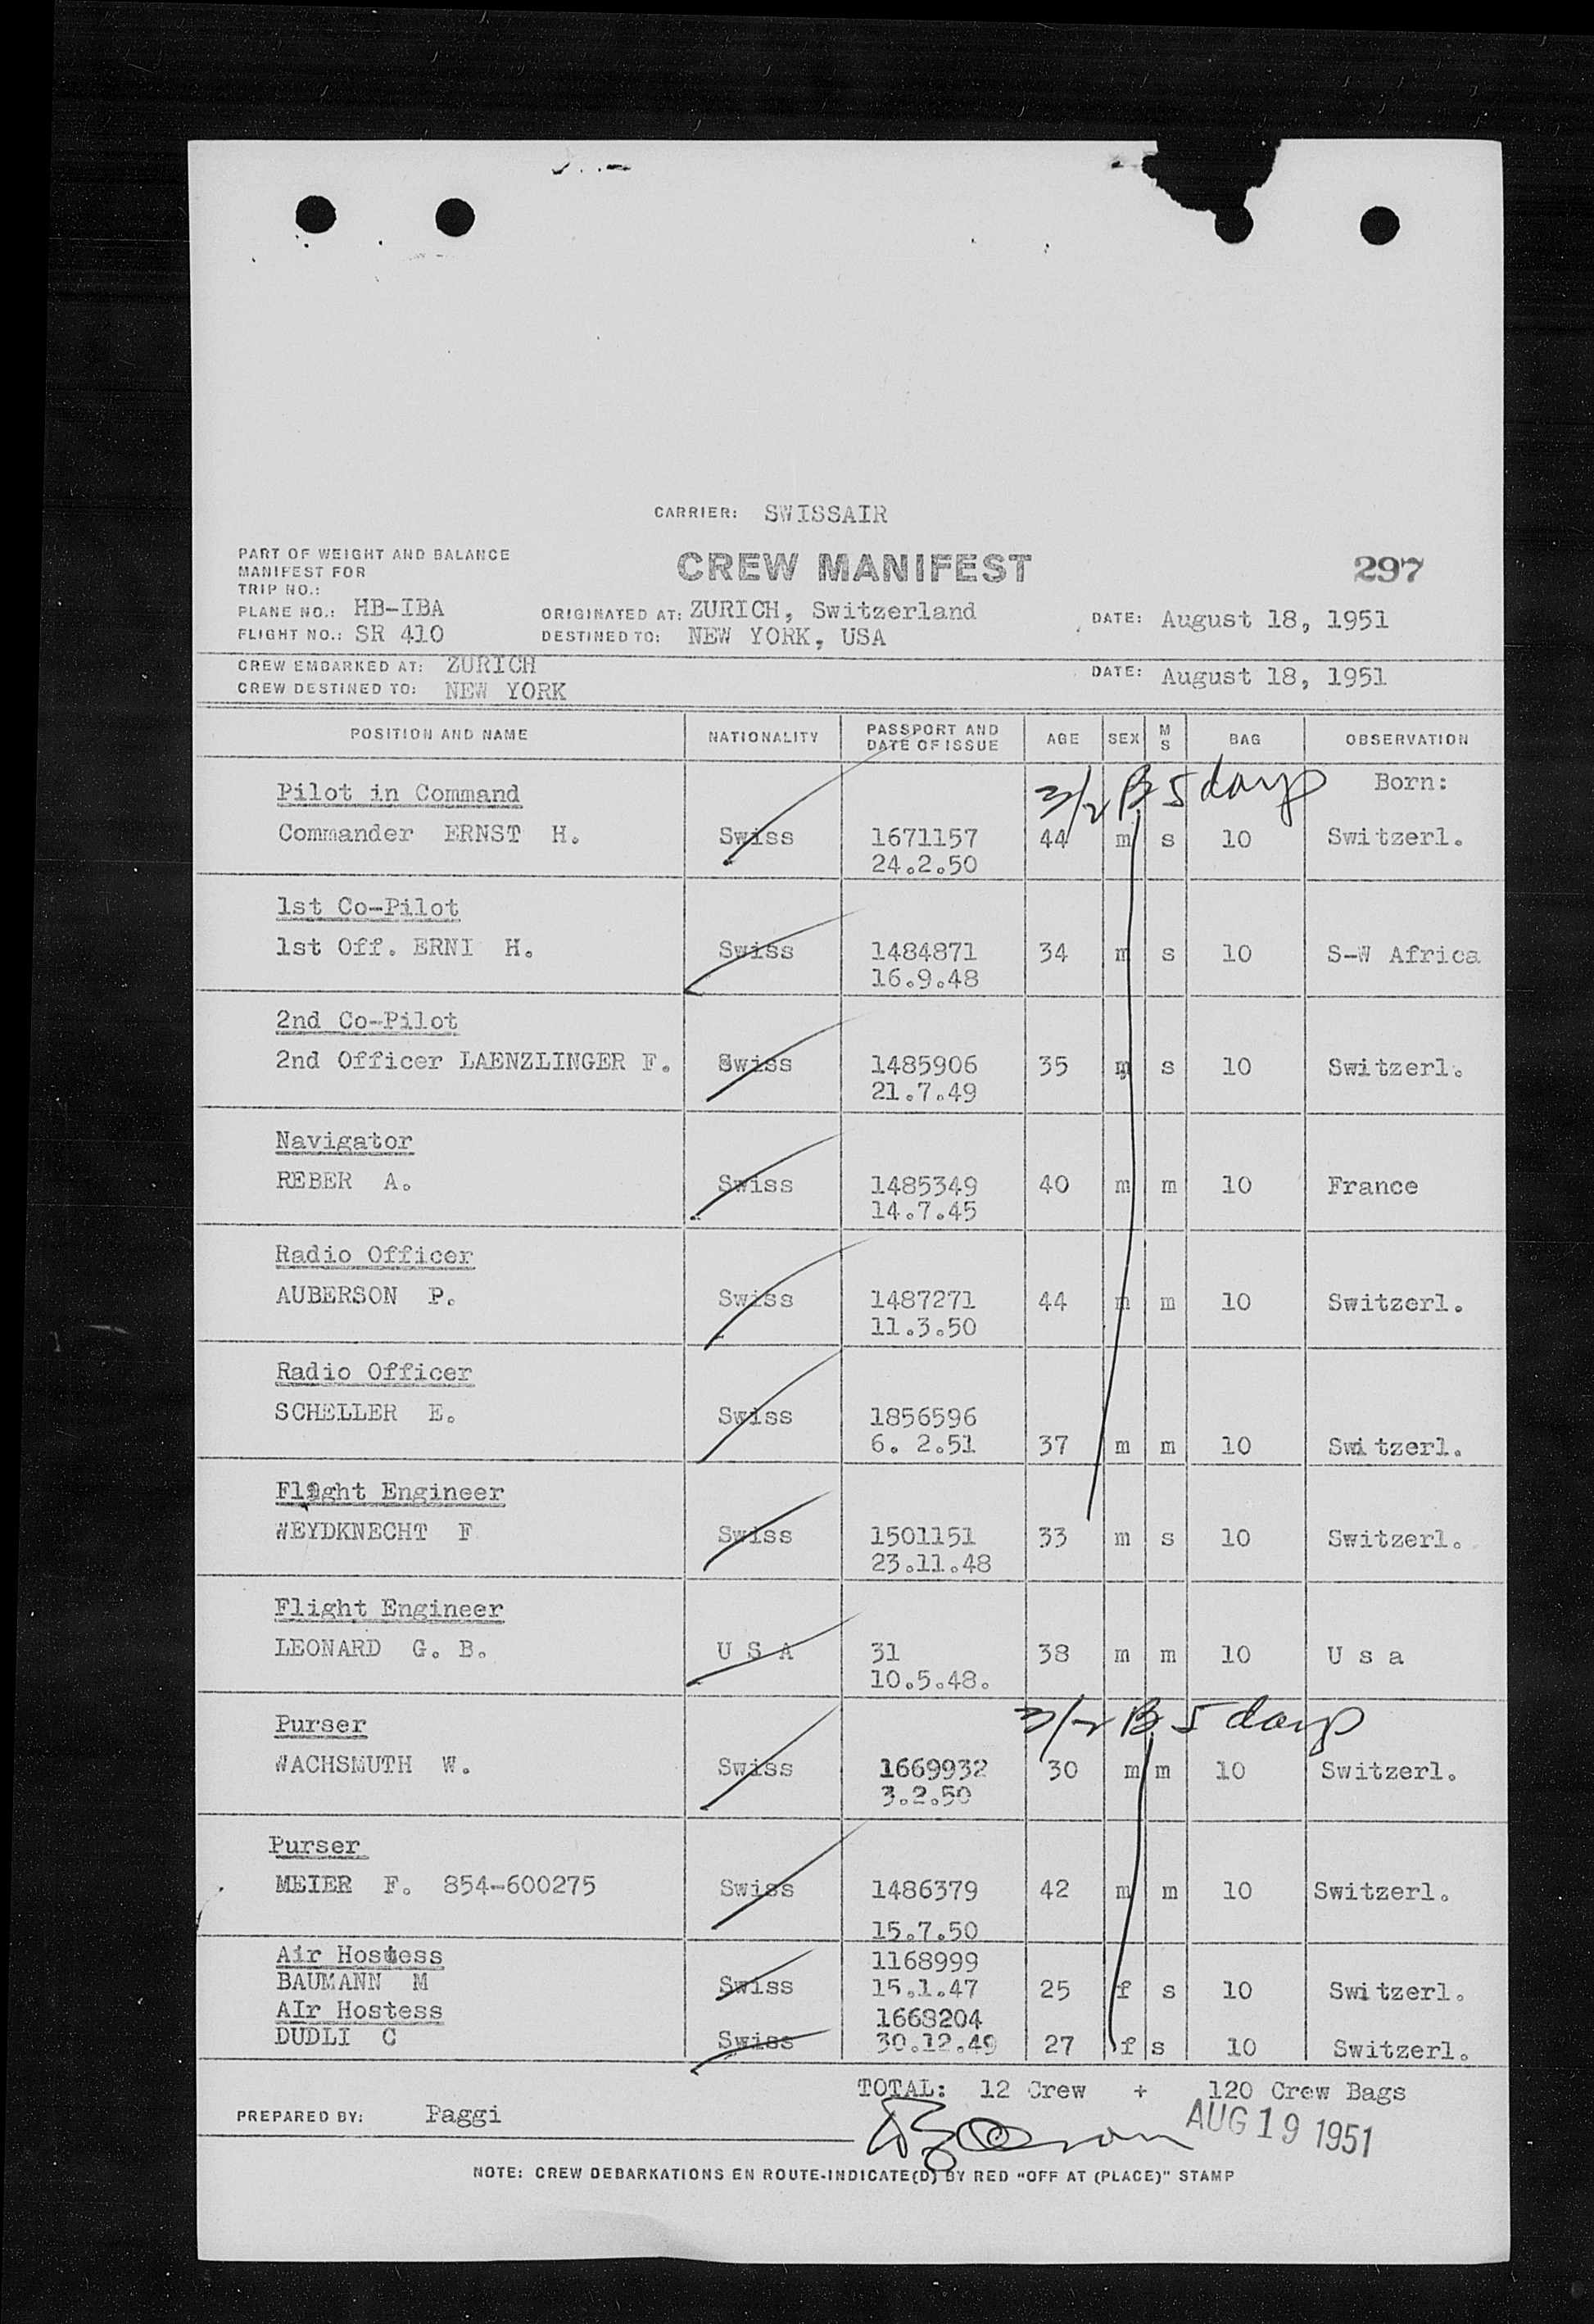 CARRIER: SWISSAIR
PART OF WEIGHT AND BALANCE
MANIFEST FOR
TRIP NO.:
CREW MANIFEST
297
PLANE NO.: HB-IBA
ORIGINATED AT: ZURICH, Switzerland
DATE: August 18, 1951
FLIGHT NO.: SR 410
DESTINED TO: NEW YORK, USA
CREW EMBARKED AT: ZURICH
DATE: August 18, 1951
CREW DESTINED TO: NEW YORK
POSITION AND NAME NATIONALITY PASSPORT AND DATE OF ISSUE AGE SEX M S BAG OBSERVATION
3/2 B 5 days
Born:
Pilot in Command
Commander ERNST H. Swiss 1671157 44 m s 10 Switzerl.
24.2.50
1st Co-Pilot
1st Off. ERNI H. Swiss 1484871 34 m s 10 S-W Africa
16.9.48
2nd Co-Pilot
2nd Officer LAENZLINGER F. Swiss 1485906 35 m s 10 Switzerl.
21.7.49
Navigator
REBER A. Swiss 1485349 40 m m 10 France
14.7.45
Radio Officer
AUBERSON P. Swiss 1487271 44 m m 10 Switzerl.
11.3.50
Radio Officer
SCHELLER E. Swiss 1856596
6. 2.51 37 m m 10 Switzerl.
Flight Engineer
WEYDKNECHT F Swiss 1501151 33 m s 10 Switzerl.
23.11.48
Flight Engineer
LEONARD G. B. U S A 31 38 m m 10 U s a
10.5.48.
3/2 B 5 days
Purser
WACHSMUTH W. Swiss 1669932 30 m m 10 Switzerl.
3.2.50
Purser
MEIER F. 854-600275 Swiss 1486379 42 m m 10 Switzerl.
15.7.50
Air Hostess 1168999
BAUMANN M Swiss 15.1.47 25 f s 10 Switzerl.
AIr Hostess 1668204
DUDLI C Swiss 30.12.49 27 f s 10 Switzerl.
TOTAL: 12 Crew + 120 Crew Bags
PREPARED BY: Paggi
AUG 19 1951
NOTE: CREW DEBARKATIONS EN ROUTE-INDICATE(D) BY RED "OFF AT (PLACE)" STAMP